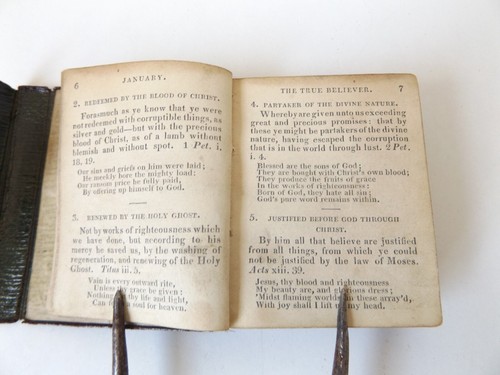 6
JANUARY.
2. REDEEMED BY THE BLOOD OF CHRIST.
Forasmuch as ye know that ye were
not redeemed with corruptible things, as
silver and gold—but with the precious
blood of Christ, as of a lamb without
blemish and without spot. 1 Pet. i.
18, 19.
Our sins and griefs on him were laid;
He meekly bore the mighty load:
Our ransom price he fully paid,
By offering up himself to God.
3. RENEWED BY THE HOLY GHOST.
Not by works of righteousness which
we have done, but according to his
mercy he saved us, by the washing of
regeneration, and renewing of the Holy
Ghost. Titus iii. 5.
Vain is every outward rite,
Unless thy grace be given;
Nothing thy life and light,
Can a soul for heaven.
THE TRUE BELIEVER. 7
4. PARTAKER OF THE DIVINE NATURE.
Whereby are given unto us exceeding
great and precious promises: that by
these ye might be partakers of the divine
nature, having escaped the corruption
that is in the world through lust. 2 Pet.
i. 4.
Blessed are the sons of God;
They are bought with Christ's own blood;
They produce the fruits of grace
In the works of righteousness;
Born of God, they hate all sin;
God's pure word remains within.
5. JUSTIFIED BEFORE GOD THROUGH
CHRIST.
By him all that believe are justified
from all things, from which ye could
not be justified by the law of Moses.
Acts xiii. 39.
Jesus, thy blood and righteousness
My beauty are, and glorious dress;
'Midst flaming worlds in these array'd,
With joy shall I lift my head.